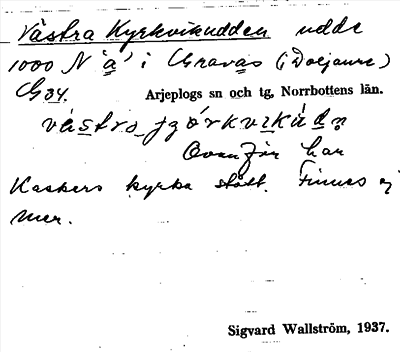 Västra Kyrkvikudden udde
1000 N å i Gravas (i Doljaure)
G 34.
Arjeplogs sn och tg, Norrbottens län.
Ovanför har
Kaskers kyrka stått. Finnes ej
mer.
Sigvard Wallström, 1937.